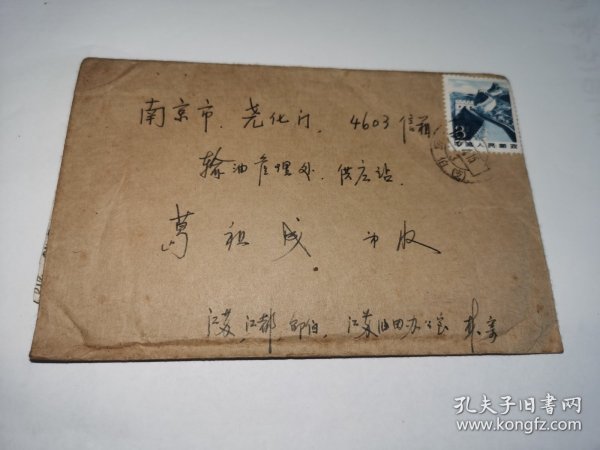 南京市 尧化门, 4603信箱
输油管理处 供应站
葛祖成 收
江苏 江都 邵伯 江苏油田办公室 林寄
中国人民邮政
孔夫子旧书网
www.kongfz.com